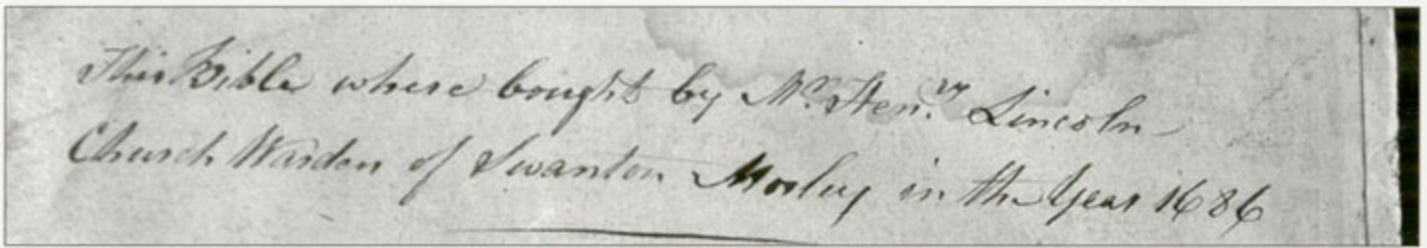 This Bible where bought by Mr. Hen.ry Lincoln
Church Warden of Swanton Morley in the Year 1686